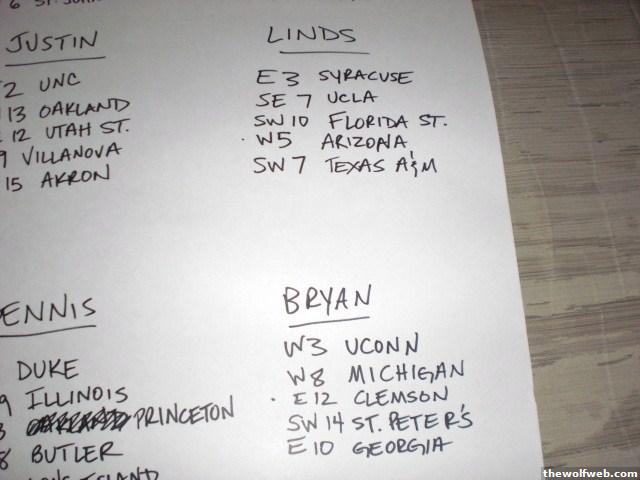 6 ST. JOHN
JUSTIN
2 UNC
13 OAKLAND
12 UTAH ST.
9 VILLANOVA
15 AKRON
LINDS
E 3 SYRACUSE
SE 7 UCLA
SW 10 FLORIDA ST.
W5 ARIZONA
SW 7 TEXAS A&M
ENNIS
DUKE
9 ILLINOIS
3 PRINCETON
8 BUTLER
LONG ISLAND
BRYAN
W3 UCONN
W8 MICHIGAN
E 12 CLEMSON
SW 14 ST. PETER'S
E 10 GEORGIA
thewolfweb.com